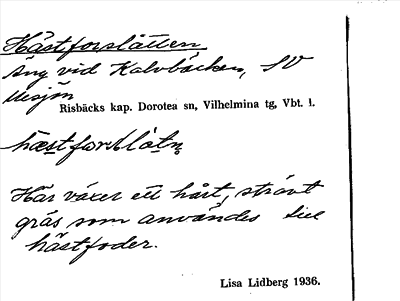 Hästforslåtten
Äng vid Kalvbäcken, SV
Risbäcks kap. Dorotea sn, Vilhelmina tg, Vbt. l.
Här växer ett hårt, strävt
gräs som användes till
hästfoder.
Lisa Lidberg 1936.